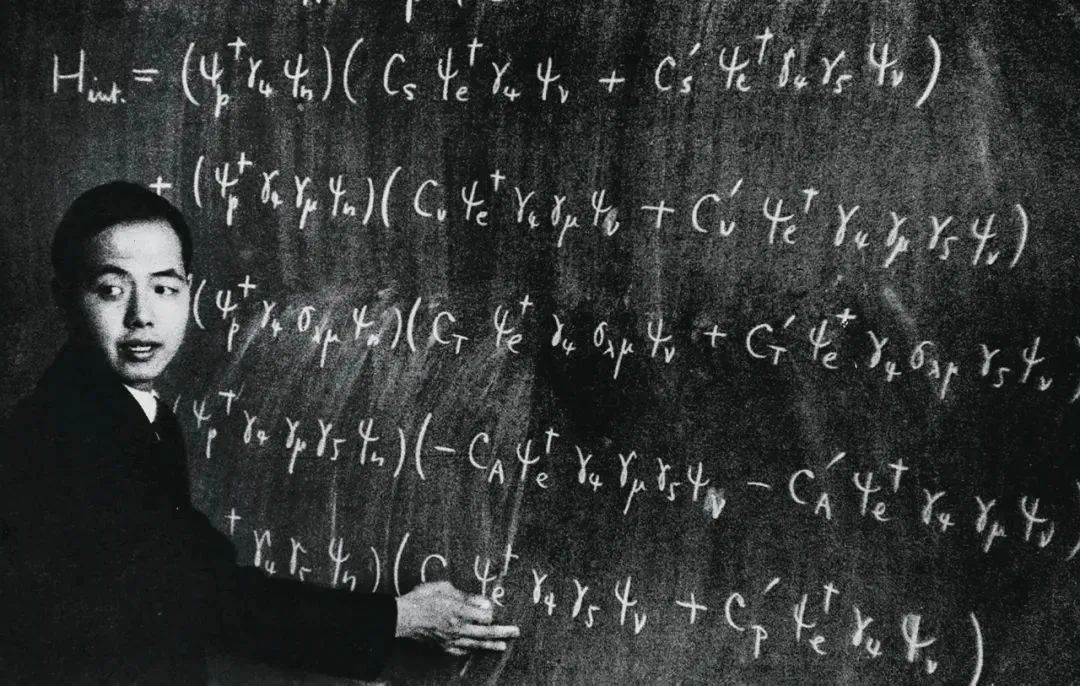 H_int. = (ψ_p† γ_4 ψ_n)( C_S ψ_e† γ_4 ψ_ν + C_S′ ψ_e† γ_4 γ_5 ψ_ν )
+ (ψ_p† γ_4 γ_μ ψ_n)( C_V ψ_e† γ_4 γ_μ ψ_ν + C_V′ ψ_e† γ_4 γ_μ γ_5 ψ_ν )
(ψ_p† γ_4 σ_λμ ψ_n)( C_T ψ_e† γ_4 σ_λμ ψ_ν + C_T′ ψ_e† γ_4 σ_λμ γ_5 ψ_ν )
(ψ_p† γ_4 γ_μ γ_5 ψ_n)( - C_A ψ_e† γ_4 γ_μ γ_5 ψ_ν - C_A′ ψ_e† γ_4 γ_μ ψ_ν )
† γ_4 γ_5 ψ_n)( C ψ_e† γ_4 γ_5 ψ_ν + C_p′ ψ_e† γ_4 ψ_ν )